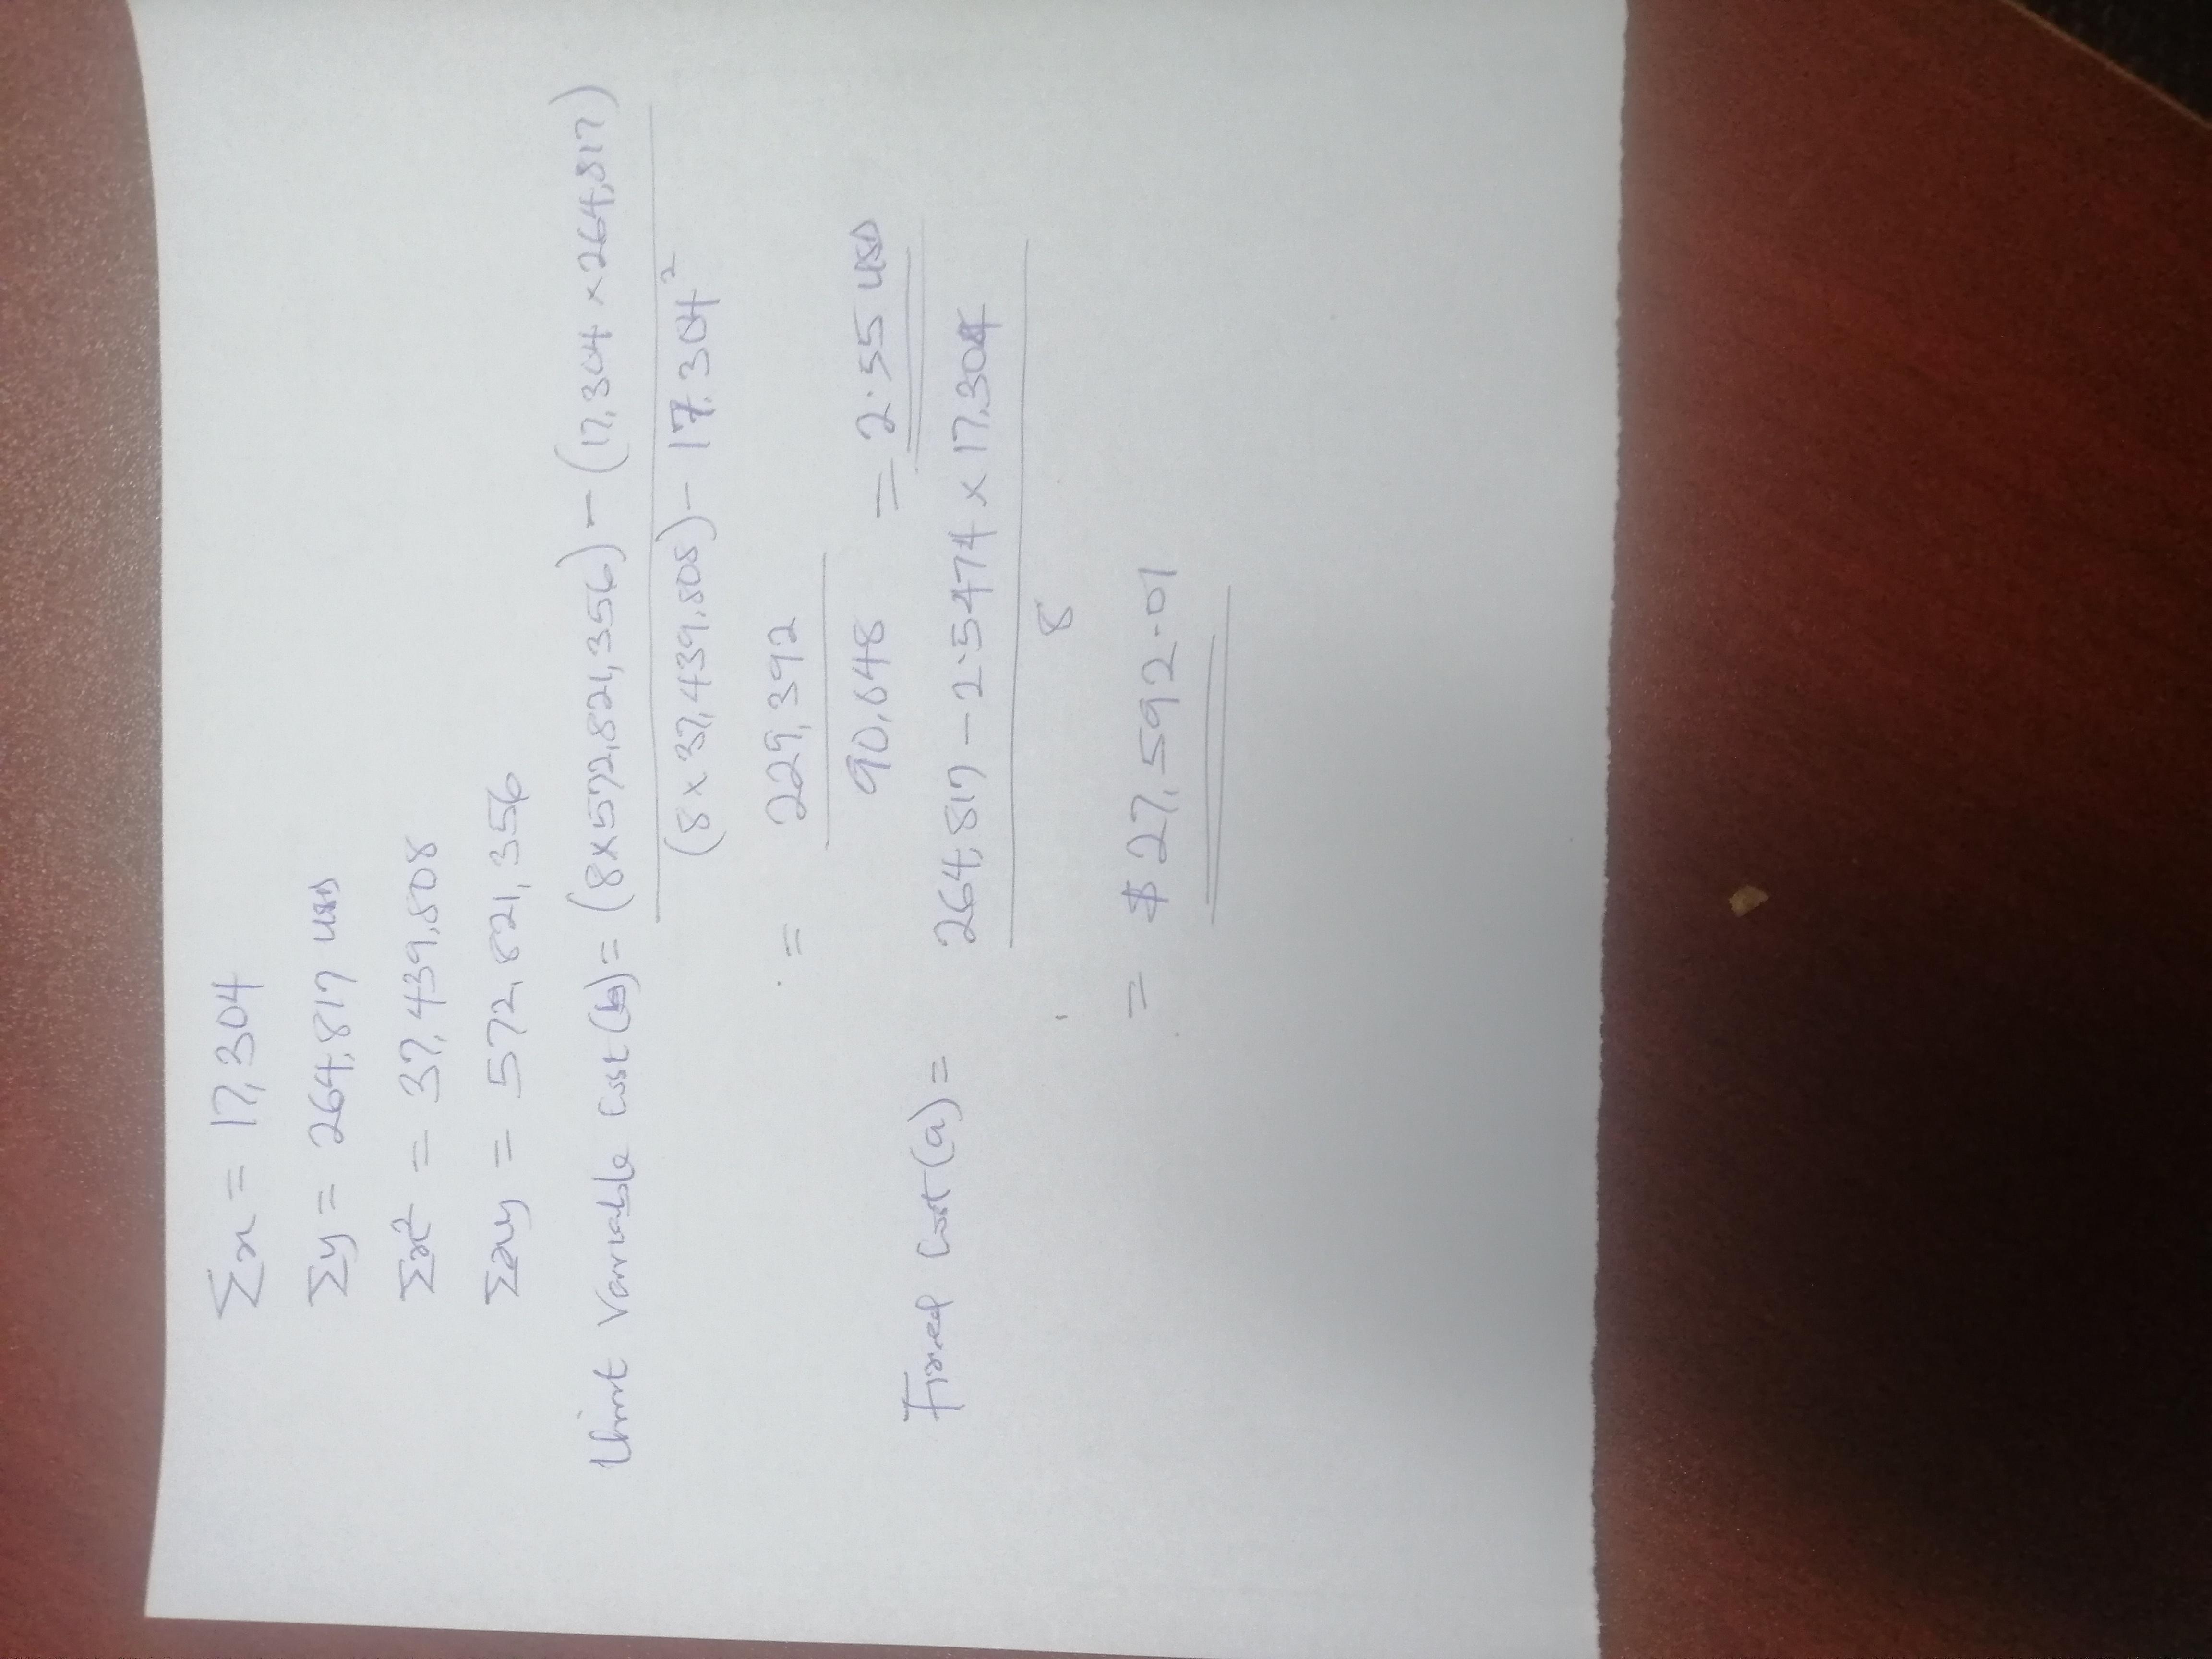 Σx = 17,304
Σy = 264,817 USD
Σx² = 37,439,808
Σxy = 572,821,356
Unit Variable Cost (b) = (8×572,821,356) - (17,304 × 264,817)
(8 × 37,439,808) - 17,304²
= 229,392
90,648 = 2.55 USD
Fixed Cost (a) = 264,817 - 2.5474 × 17,304
8
= $ 27,592.01